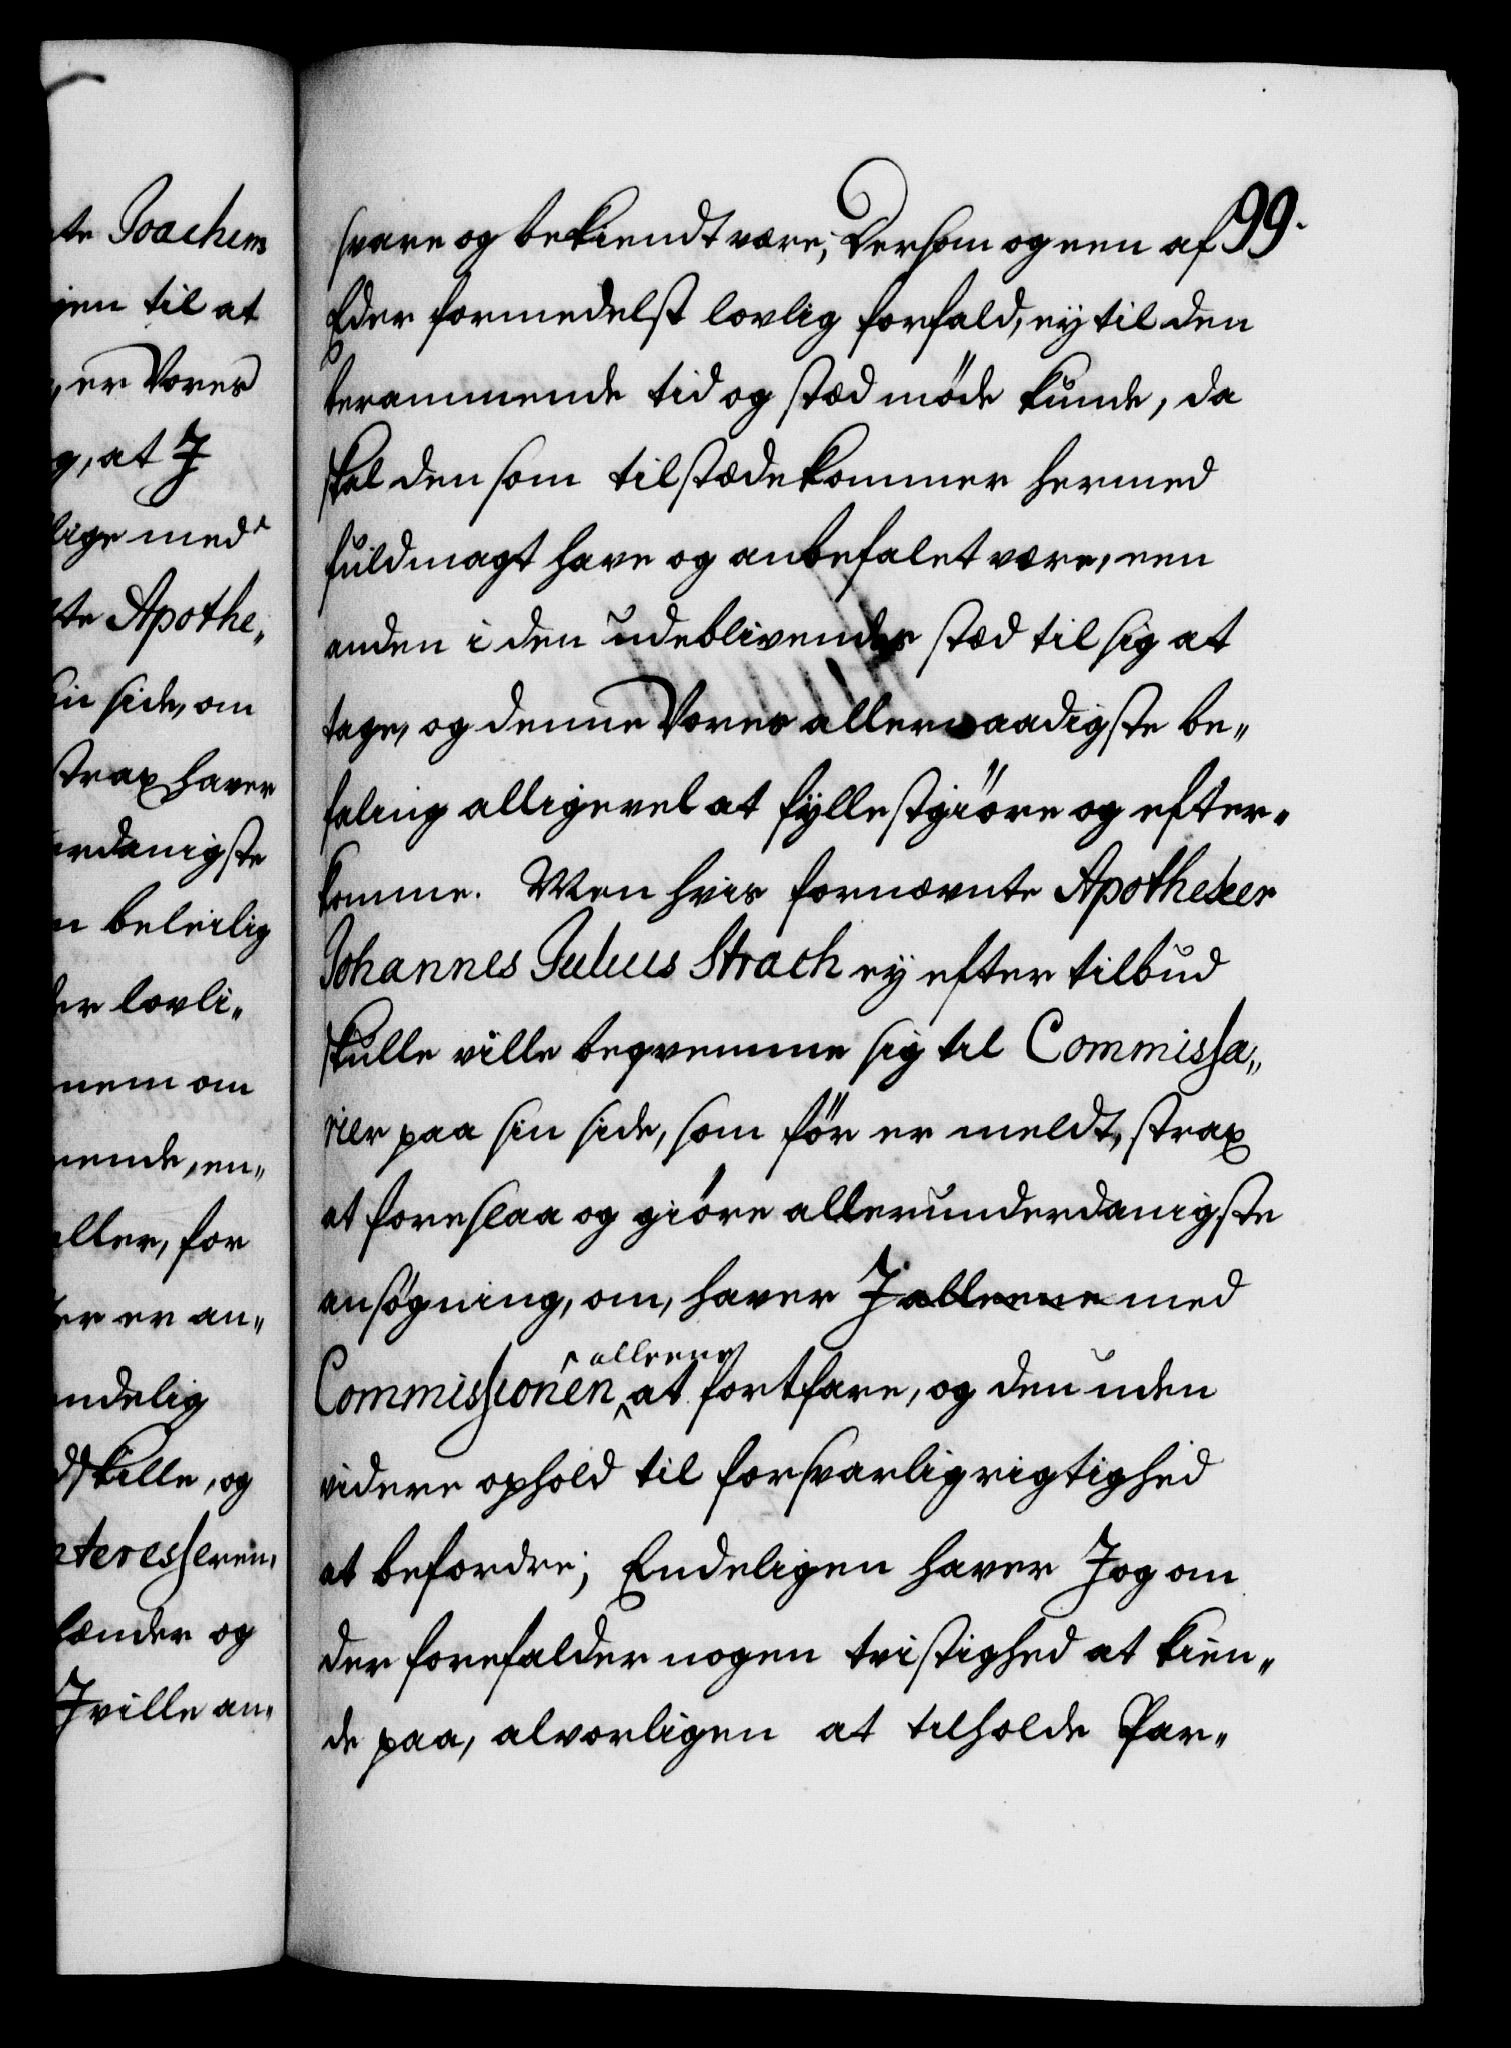 te Joachem
jen til at
, er Vores
g, at J
lige med
te Apothe„
sin side, om
strax haver
erdanigste
n beleilig
der lovli„
nem om
nende, en„
eller, for
er er an„
endelig
dskille, og
nteresseren„
hænder og
J ville an„
99.
svare og bekiendt være; Dersom og een af
Eder formedelst lovlig forfald, ey til den
berammende tid og stæd møde kunde, da
skal den som tilstædekommer hermed
fuldmagt have og anbefalet være, een
anden i den udeblivendes stæd til sig at
tage, og denne Vores allernaadigste be„
faling alligevel at fyllestgiöre og efter„
komme. Men hvis fornævnte Apotheker
Johannes Julius Strach ey efter tilbud
skulle ville beqvemme sig til Commissa„
rier paa sin side, som för er meldt, strax
at foreslaa og giöre allerunderdanigste
ansøgning, om, haver J alleene med
alleene
Commissionen at fortfare, og den uden
videre ophold til forsvarlig rigtighed
at befordre; Endeligen haver J og om
der forefalder nogen tvistighed at kien„
de paa, alvorligen at tilholde Par„